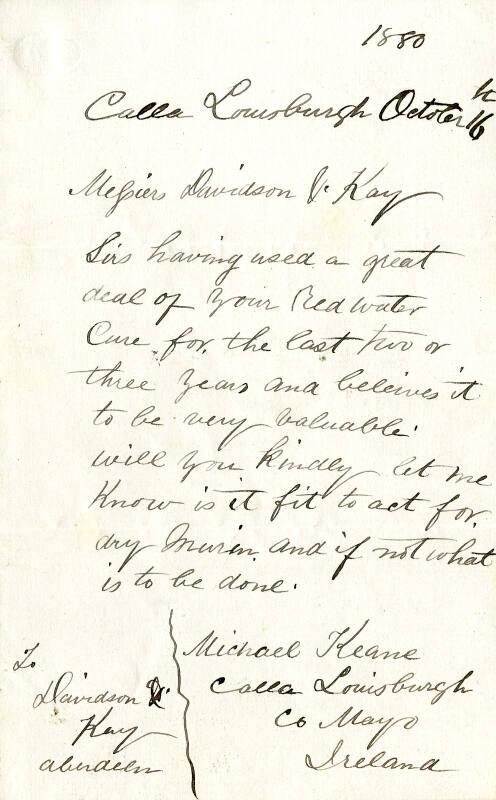 1880
Calla Louisburgh October 16th
Messiers Davidson & Kay
Sirs having used a great
deal of your Red water
Cure for the last two or
three years and beleives it
to be very valuable.
will you kindly let me
Know is it fit to act for
dry Murin and if not what
is to be done.
Michael Keane
Calla Louisburgh
Co Mayo
Ireland
To
Davidson &
Kay
aberdeen